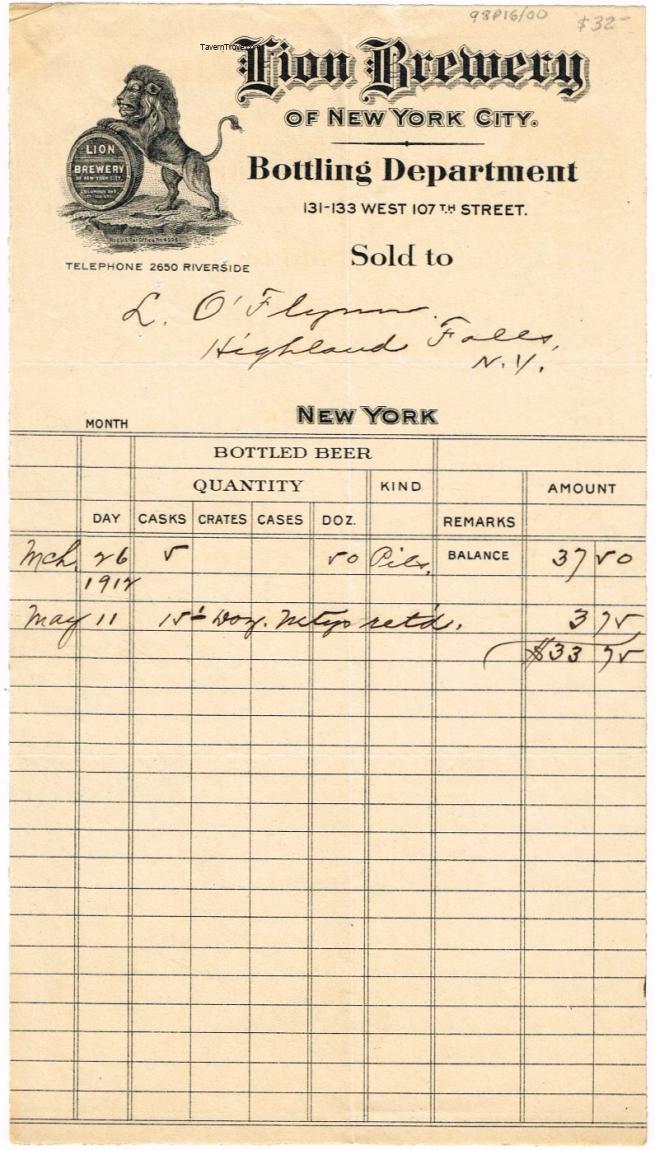 98P16/00 $32-
TavernTrove.com
Lion Brewery
OF NEW YORK CITY.
Bottling Department
131-133 WEST 107TH STREET.
LION
BREWERY
OF NEW YORK CITY.
TELEPHONE 2650 RIVERSIDE
Sold to
L. O'Flynn.
Highland Falls,
N.Y.
NEW YORK
MONTH
BOTTLED BEER
QUANTITY KIND AMOUNT
DAY CASKS CRATES CASES DOZ. REMARKS
Mch. 26 5 50 Pils. BALANCE 37 50
1912
May 11 15- Doz. Mtys ret'd. 3 75
$33 75